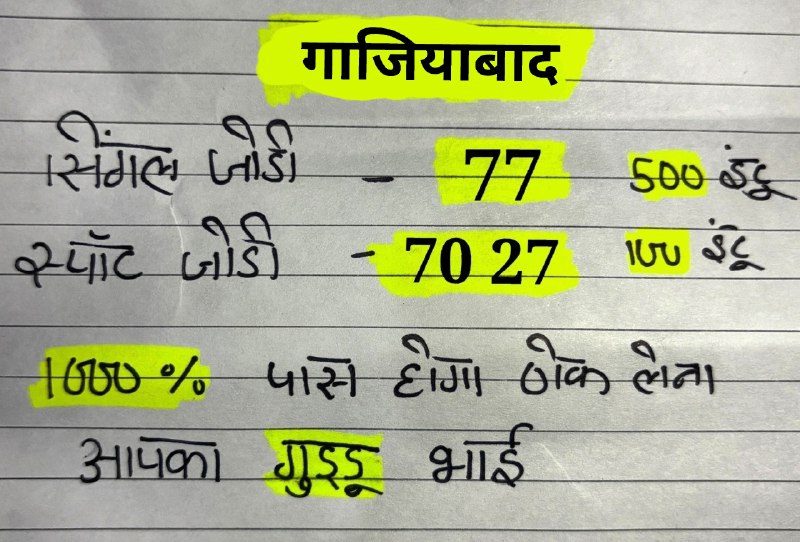 गाजियाबाद
सिंगल जोडी - 77 500 इंटू
स्पॉट जोडी - 70 27 100 इंटू
1000 % पास होगा ठोक लेना
आपका गुड्डू भाई